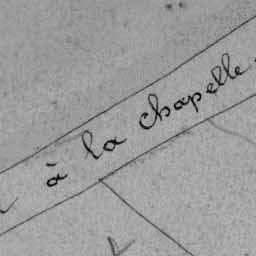 à la chapelle